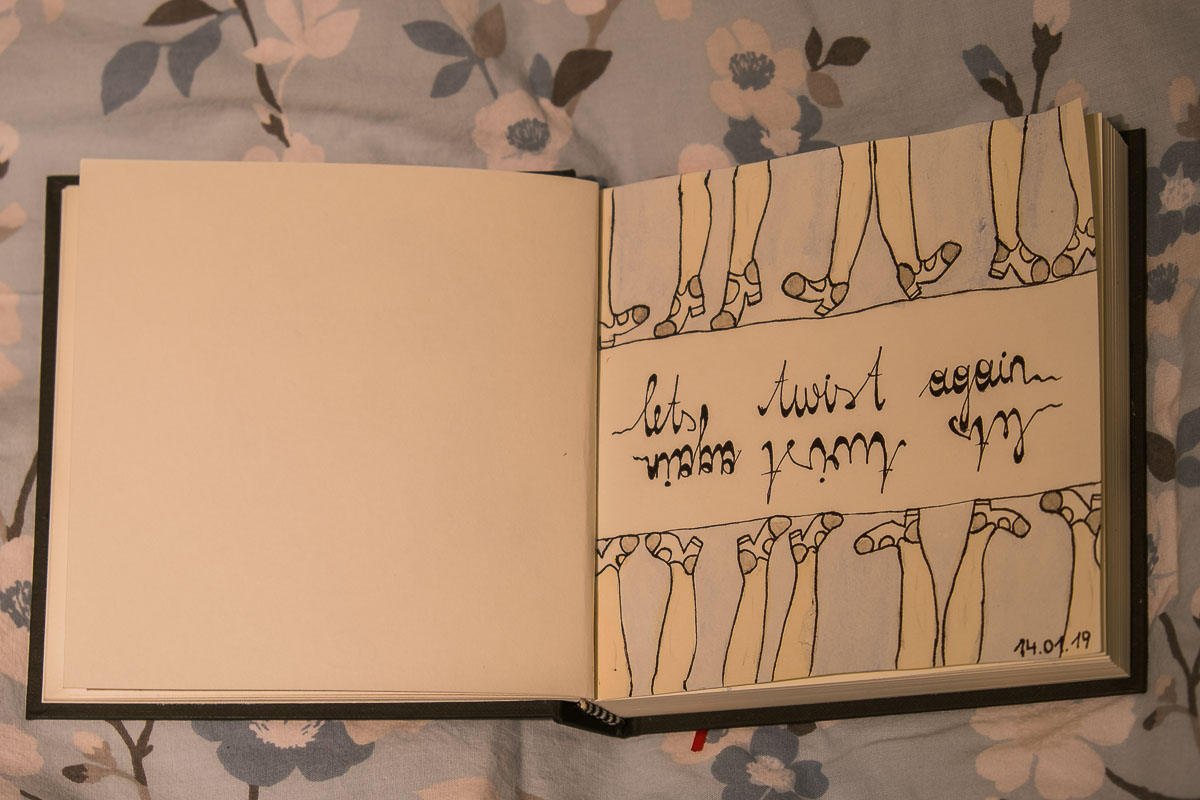 lets twist again
lets twist again
14.01.19